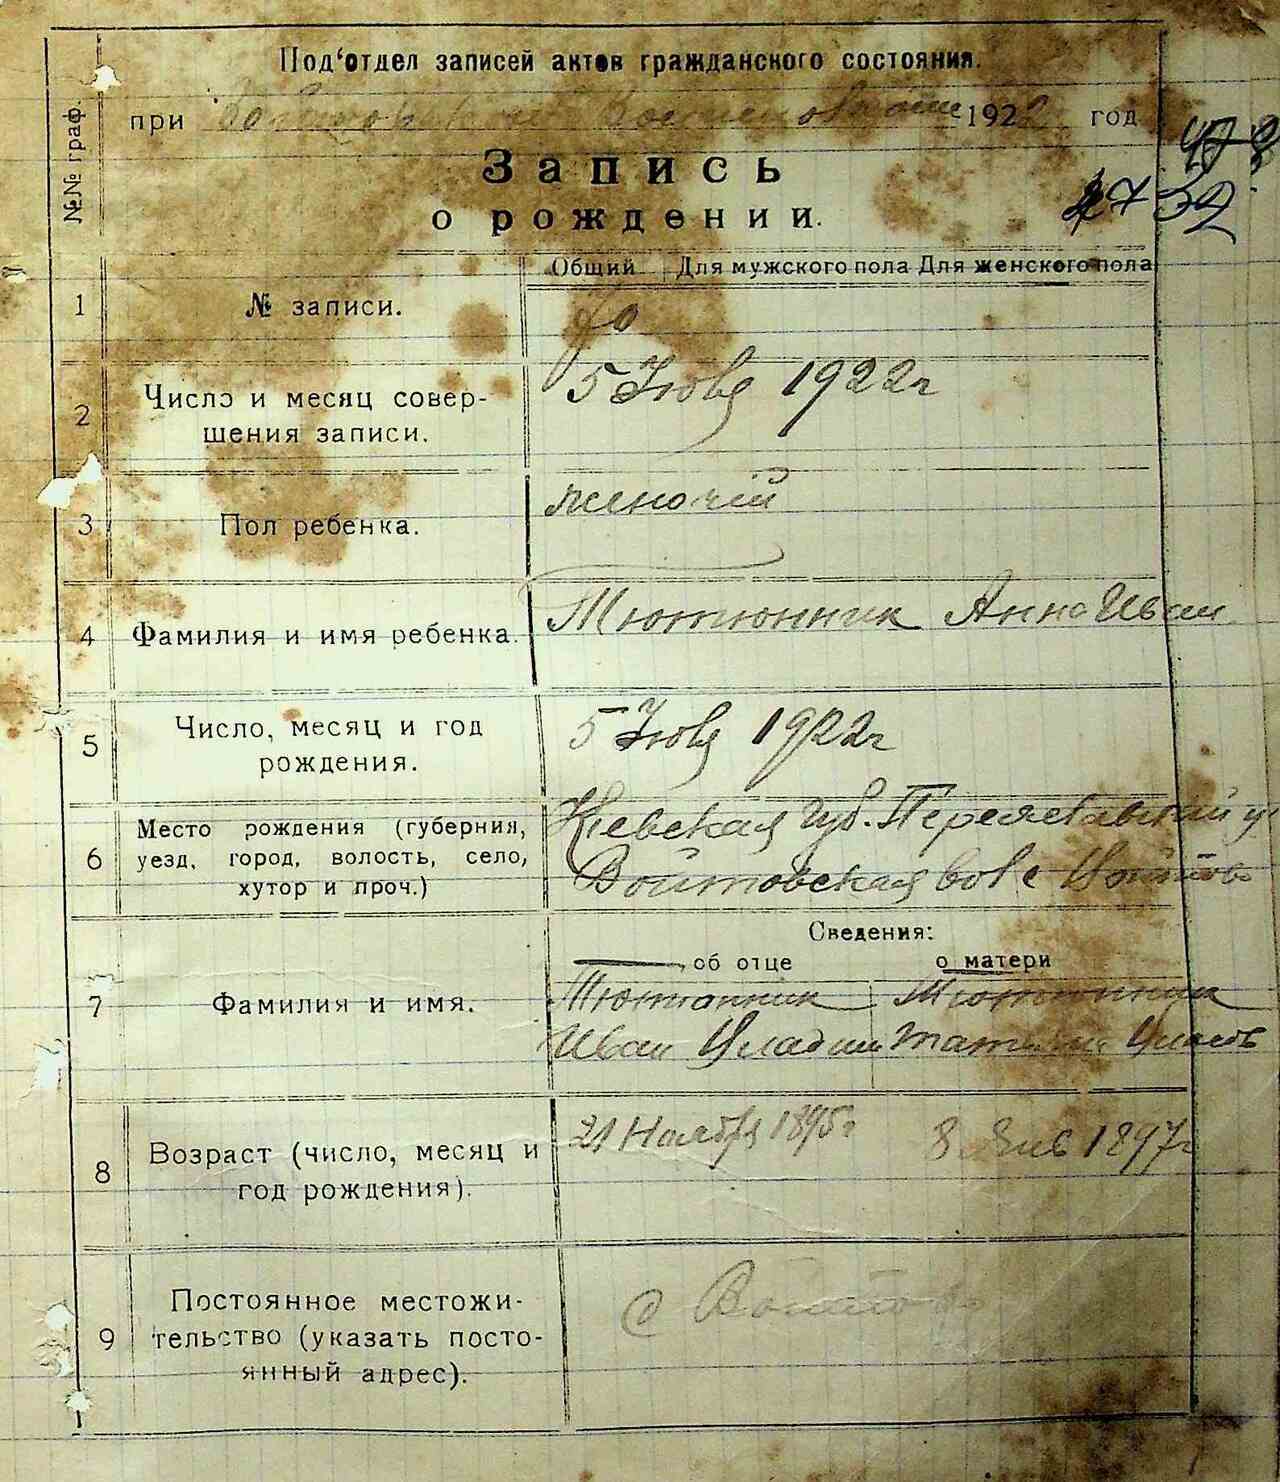 Под‘отдел записей актов гражданского состояния.
при 192 год
№№ граф.
Запись
о рождении.
4732
Общий Для мужского пола Для женского пола
1 № записи.
2 Число и месяц совер-
шения записи.
5 Июля 1922г
3 Пол ребенка.
женочий
4 Фамилия и имя ребенка. Тютюнник Анна Иван
5 Число, месяц и год
рождения.
5 Июля 1922г
6 Место рождения (губерния,
уезд, город, волость, село,
хутор и проч.)
Киевская губ. Переяславский у
Войтовская вол с Войтово
Сведения:
об отце о матери
7 Фамилия и имя.
Тютюнник Тютюнник
Иван Владим Татьяна
8 Возраст (число, месяц и
год рождения).
21 Ноября 1895г 8 Янв 1897г
9 Постоянное местожи-
тельство (указать посто-
янный адрес).
с Войтово